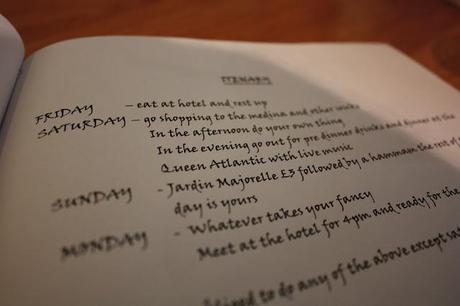 ITENARY
FRIDAY – eat at hotel and rest up
SATURDAY – go shopping to the medina and other
In the afternoon do your own thing
In the evening go out for pre dinner drinks and dinner at the
Queen Atlantic with live music
SUNDAY - Jardin Majorelle £3 followed by a hammam the rest of
day is yours
MONDAY - Whatever takes your fancy
Meet at the hotel for 4pm and ready for the
to do any of the above except